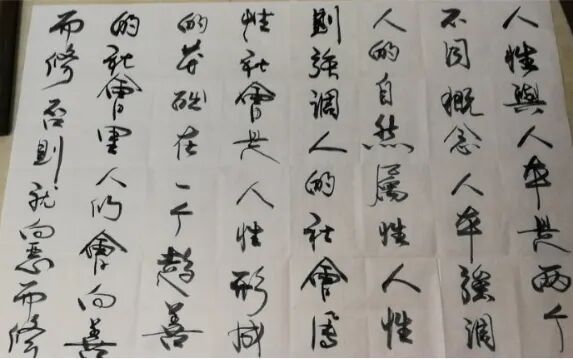 人性與人本是兩个
不同概念人本強調
人的自然属性人性
則強調人的社會属
性社會是人性形成
的基础在一个趨善
的社會里人们會向善
而修否則就向恶而修